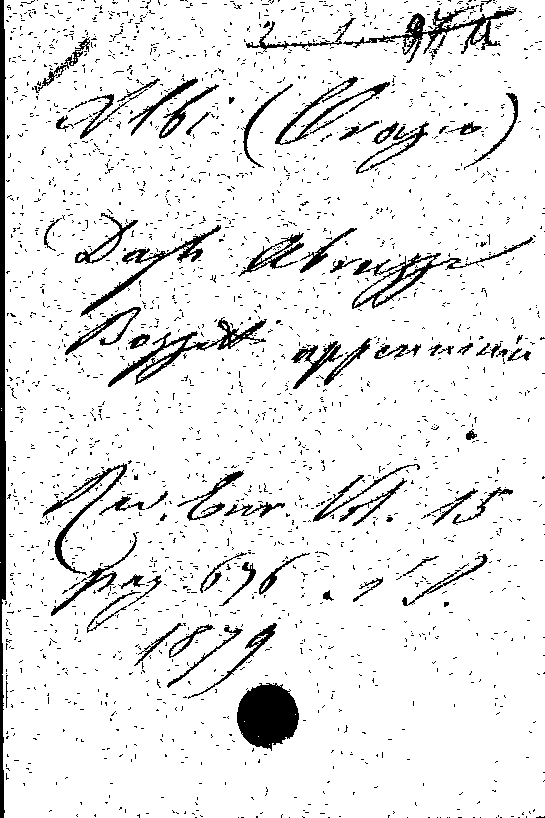 Albi (Orazio)
Dagli Abruzzi
Bozzetti appennini
Riv. Eur. Vol. 15
pag 676.
1879